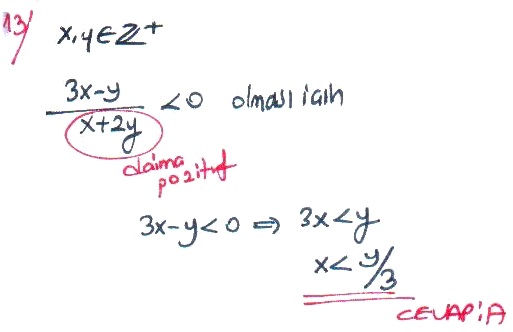 13/ x,y∈Z⁺
3x-y
/ x+2y < 0 olması için
daima
pozitif
3x-y<0 ⇒ 3x<y
x<y/3
CEVAP:A